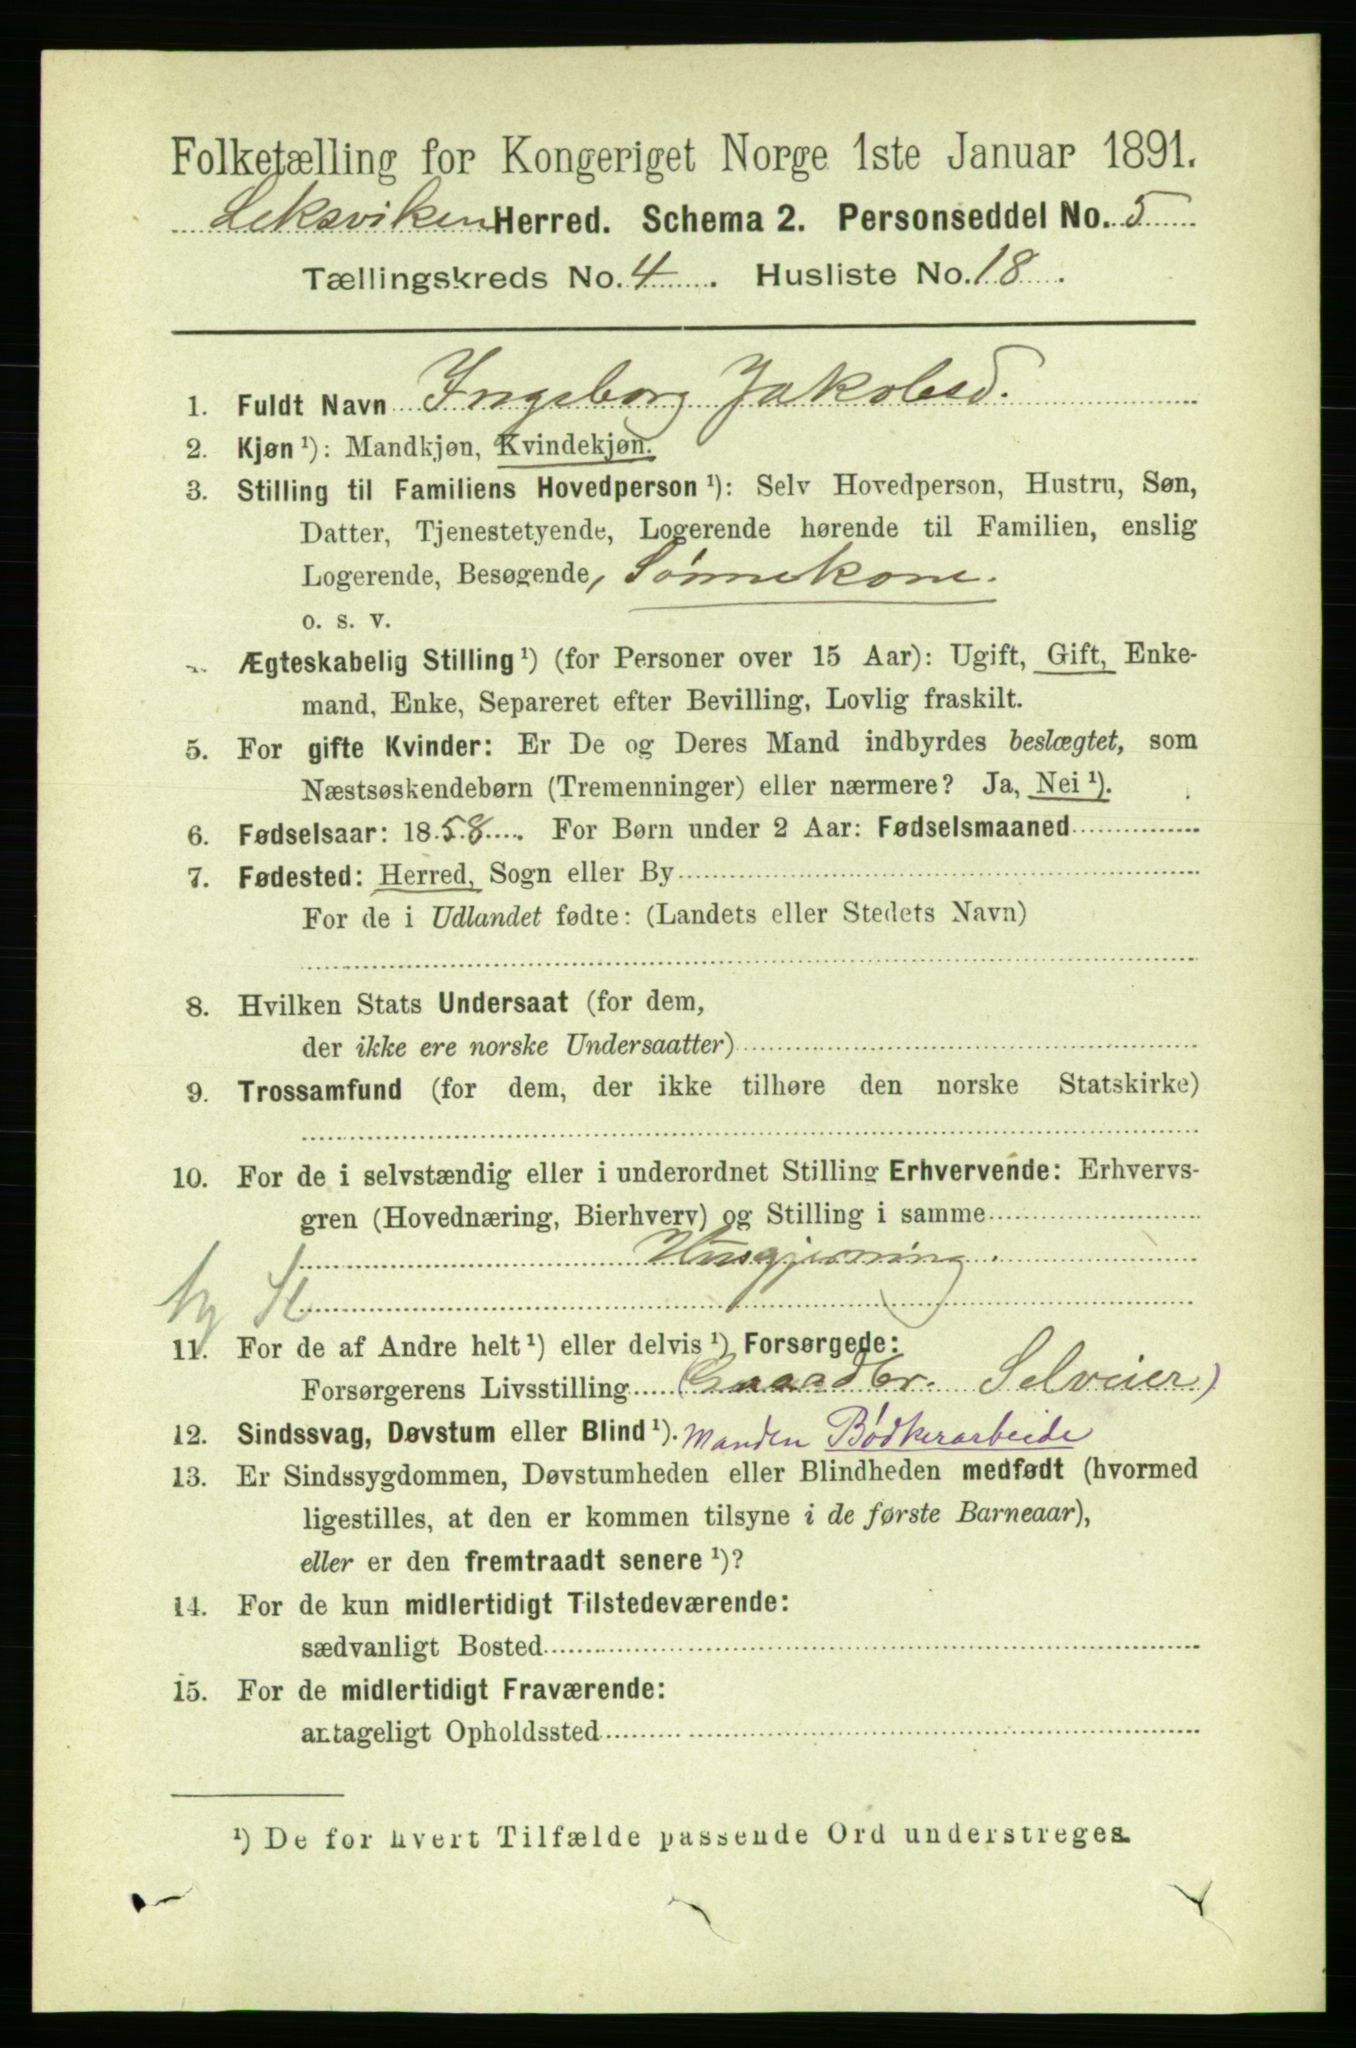 Folketælling for Kongeriget Norge 1ste Januar 1891.
Leksviken Herred. Schema 2. Personseddel No. 5
Tællingskreds No. 4. Husliste No. 18.
1. Fuldt Navn Ingeborg Jakobsd.
2. Kjøn ¹): Mandkjøn, Kvindekjøn.
3. Stilling til Familiens Hovedperson ¹): Selv Hovedperson, Hustru, Søn,
Datter, Tjenestetyende, Logerende hørende til Familien, enslig
Logerende, Besøgende, Sønnekone.
o. s. v.
Ægteskabelig Stilling ¹) (for Personer over 15 Aar): Ugift, Gift, Enke-
mand, Enke, Separeret efter Bevilling, Lovlig fraskilt.
5. For gifte Kvinder: Er De og Deres Mand indbyrdes beslægtet, som
Næstsøskendebørn (Tremenninger) eller nærmere? Ja, Nei ¹).
6. Fødselsaar: 1858. For Børn under 2 Aar: Fødselsmaaned
7. Fødested: Herred, Sogn eller By
For de i Udlandet fødte: (Landets eller Stedets Navn)
8. Hvilken Stats Undersaat (for dem,
der ikke ere norske Undersaatter)
9. Trossamfund (for dem, der ikke tilhøre den norske Statskirke)
10. For de i selvstændig eller i underordnet Stilling Erhvervende: Erhvervs-
gren (Hovednæring, Bierhverv) og Stilling i samme
Husgjerning.
11. For de af Andre helt ¹) eller delvis ¹) Forsørgede:
Forsørgerens Livsstilling (Gaardbr. Selveier)
12. Sindssvag, Døvstum eller Blind ¹). Manden Bødkerarbeide
13. Er Sindssygdommen, Døvstumheden eller Blindheden medfødt (hvormed
ligestilles, at den er kommen tilsyne i de første Barneaar),
eller er den fremtraadt senere ¹)?
14. For de kun midlertidigt Tilstedeværende:
sædvanligt Bosted
15. For de midlertidigt Fraværende:
antageligt Opholdssted
¹) De for hvert Tilfælde passende Ord understreges.